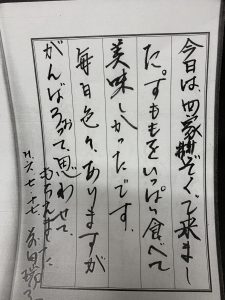 今日は、四家族ぞくで来まし
た。すももをいっぱい食べて
美味しかったです。
毎日色々ありますが
がんばろおって思わせて
もらえました
H.六.七.十七.